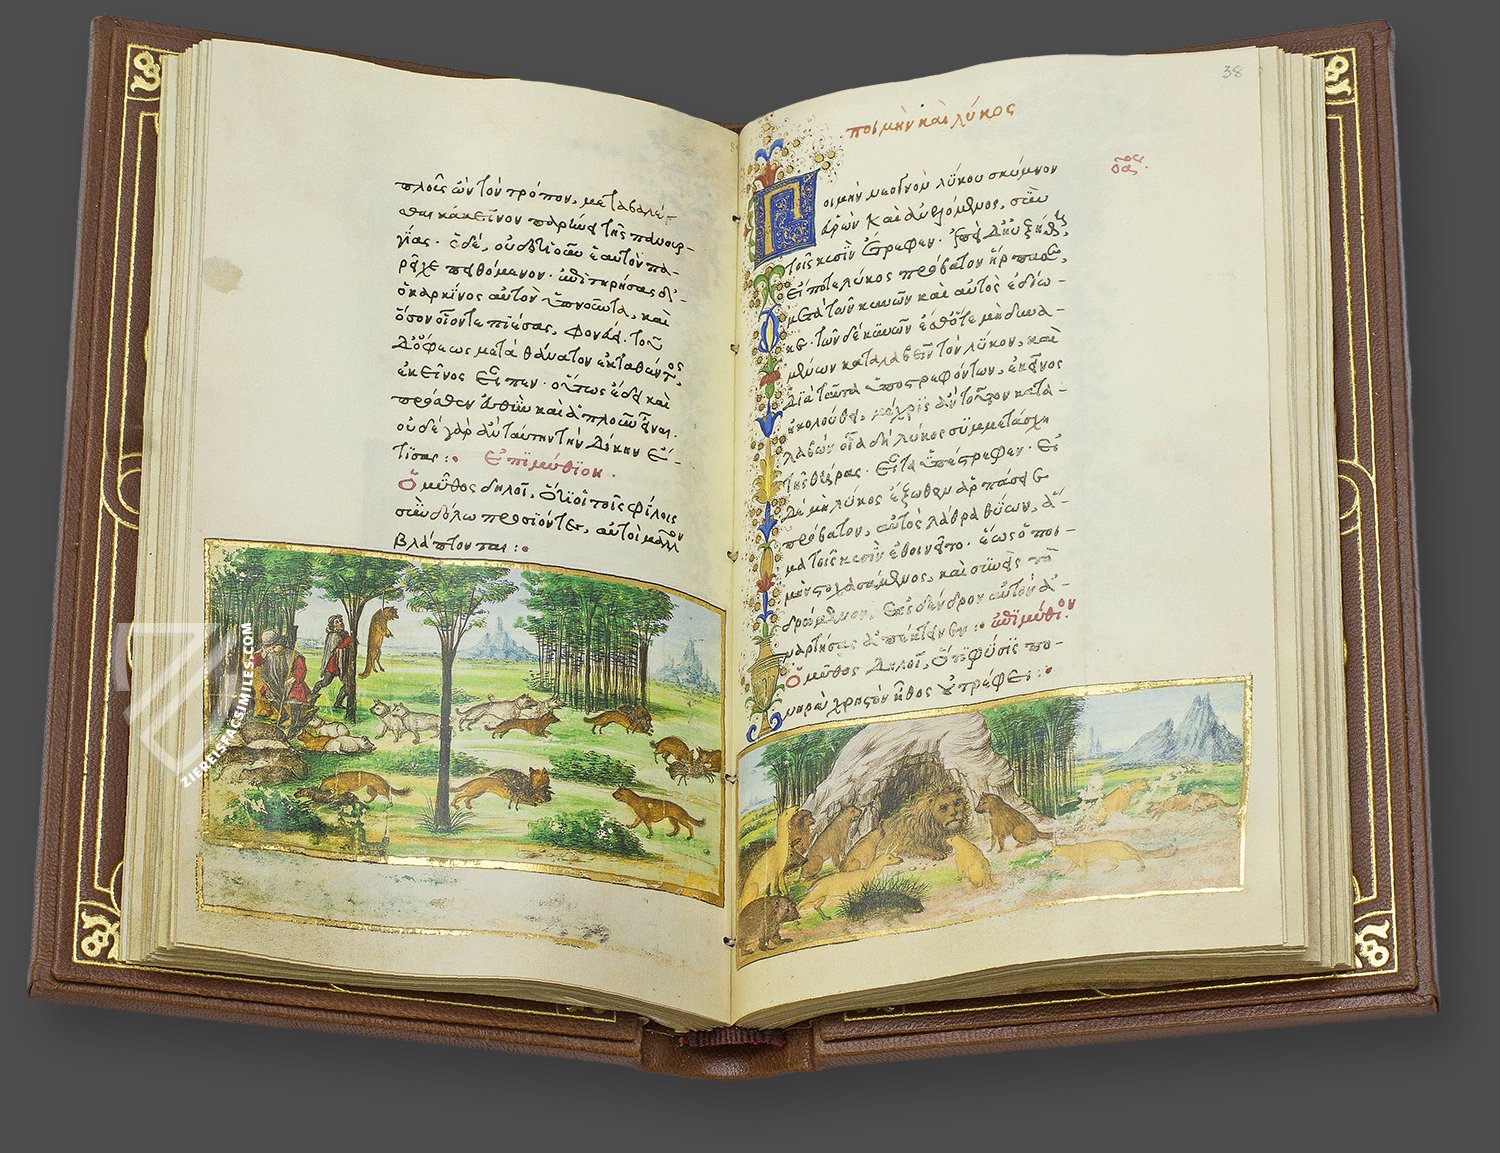 πλοῖς ὢν τὸν τρόπον, μεταβαλέ-
σθαι κἀκεῖνον παρῄνει τῆς πανουρ-
γίας. ὁ δὲ, οὐδοτιοῦν ἑαυτὸν πα-
ρεῖχε πειθόμενον. ἐπιτηρήσας δὲ
ὁ καρκῖνος αὐτὸν ὑπνοῦντα, καὶ
ὅσον οἷόντε πιέσας, φονεύει. τοῦ
δὲ ὄφεως μετὰ θάνατον ἐκταθέντος,
ἐκεῖνος εἶπεν. οὕτως ἔδει καὶ
πρόσθεν εὐθὺν καὶ ἁπλοῦν εἶναι.
οὐδὲ γὰρ ἂν ταύτην τὴν δίκην ἔ-
τισας: Ἐπιμύθιον.
Ὁ μῦθος δηλοῖ, ὅτι οἱ τοῖς φίλοις
σὺν δόλῳ προσιόντες, αὐτοὶ μᾶλλον
βλάπτονται:
38
ποιμὴν καὶ λύκος
Ποιμὴν νεογνὸν λύκου σκύμνον
εὑρὼν καὶ ἀνελόμενος, σὺν
τοῖς κυσὶν ἔτρεφεν. ἐπεὶ δὲ ηὐξήθη,
εἴ ποτε λύκος πρόβατον ἥρπασε,
μετὰ τῶν κυνῶν καὶ αὐτὸς ἐδίω-
κε. τῶν δὲ κυνῶν ἔσθ' ὅτε μὴ δυνα-
μένων καταλαβεῖν τὸν λύκον, καὶ
διὰ ταῦτα ὑποστρεφόντων, ἐκεῖνος
ἠκολούθει, μέχρις ἂν τοῦτον κατα-
λαβὼν οἷα δὴ λύκος συμμετάσχῃ
τῆς θήρας. εἶτα ὑπέστρεφεν. εἰ
δὲ μὴ λύκος ἔξωθεν ἁρπάσειε
πρόβατον, αὐτὸς λάθρα θύων, ἅ-
μα τοῖς κυσὶν ἐθοινεῖτο. ἕως ὁ ποι-
μὴν στοχασάμενος, καὶ συνεὶς τὸ
δρώμενον, εἰς δένδρον αὐτὸν ἀ-
ναρτήσας ἀπέκτεινεν: ἐπιμύθιον.
Ὁ μῦθος δηλοῖ, ὅτι φύσις πο-
νηρὰ χρηστὸν ἦθος οὐ τρέφει:
ZIEREISFACSIMILES.COM